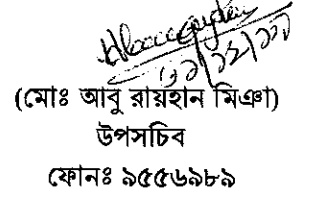 (মোঃ আবু রায়হান মিঞা)
উপসচিব
ফোনঃ ৯৫৫৬৯৮৯